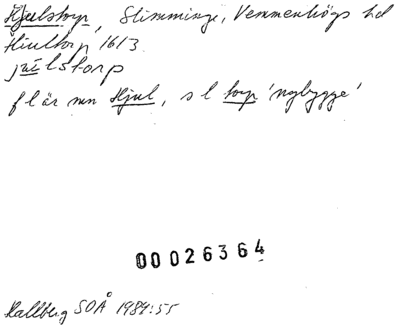 Hjulstorp, Slimminge, Vemmenhögs hd
Hiultorp 1613
julstorp
fl är mn Hjul, s l torp 'nybygge'
00026364
Hallberg SOÅ 1984:55